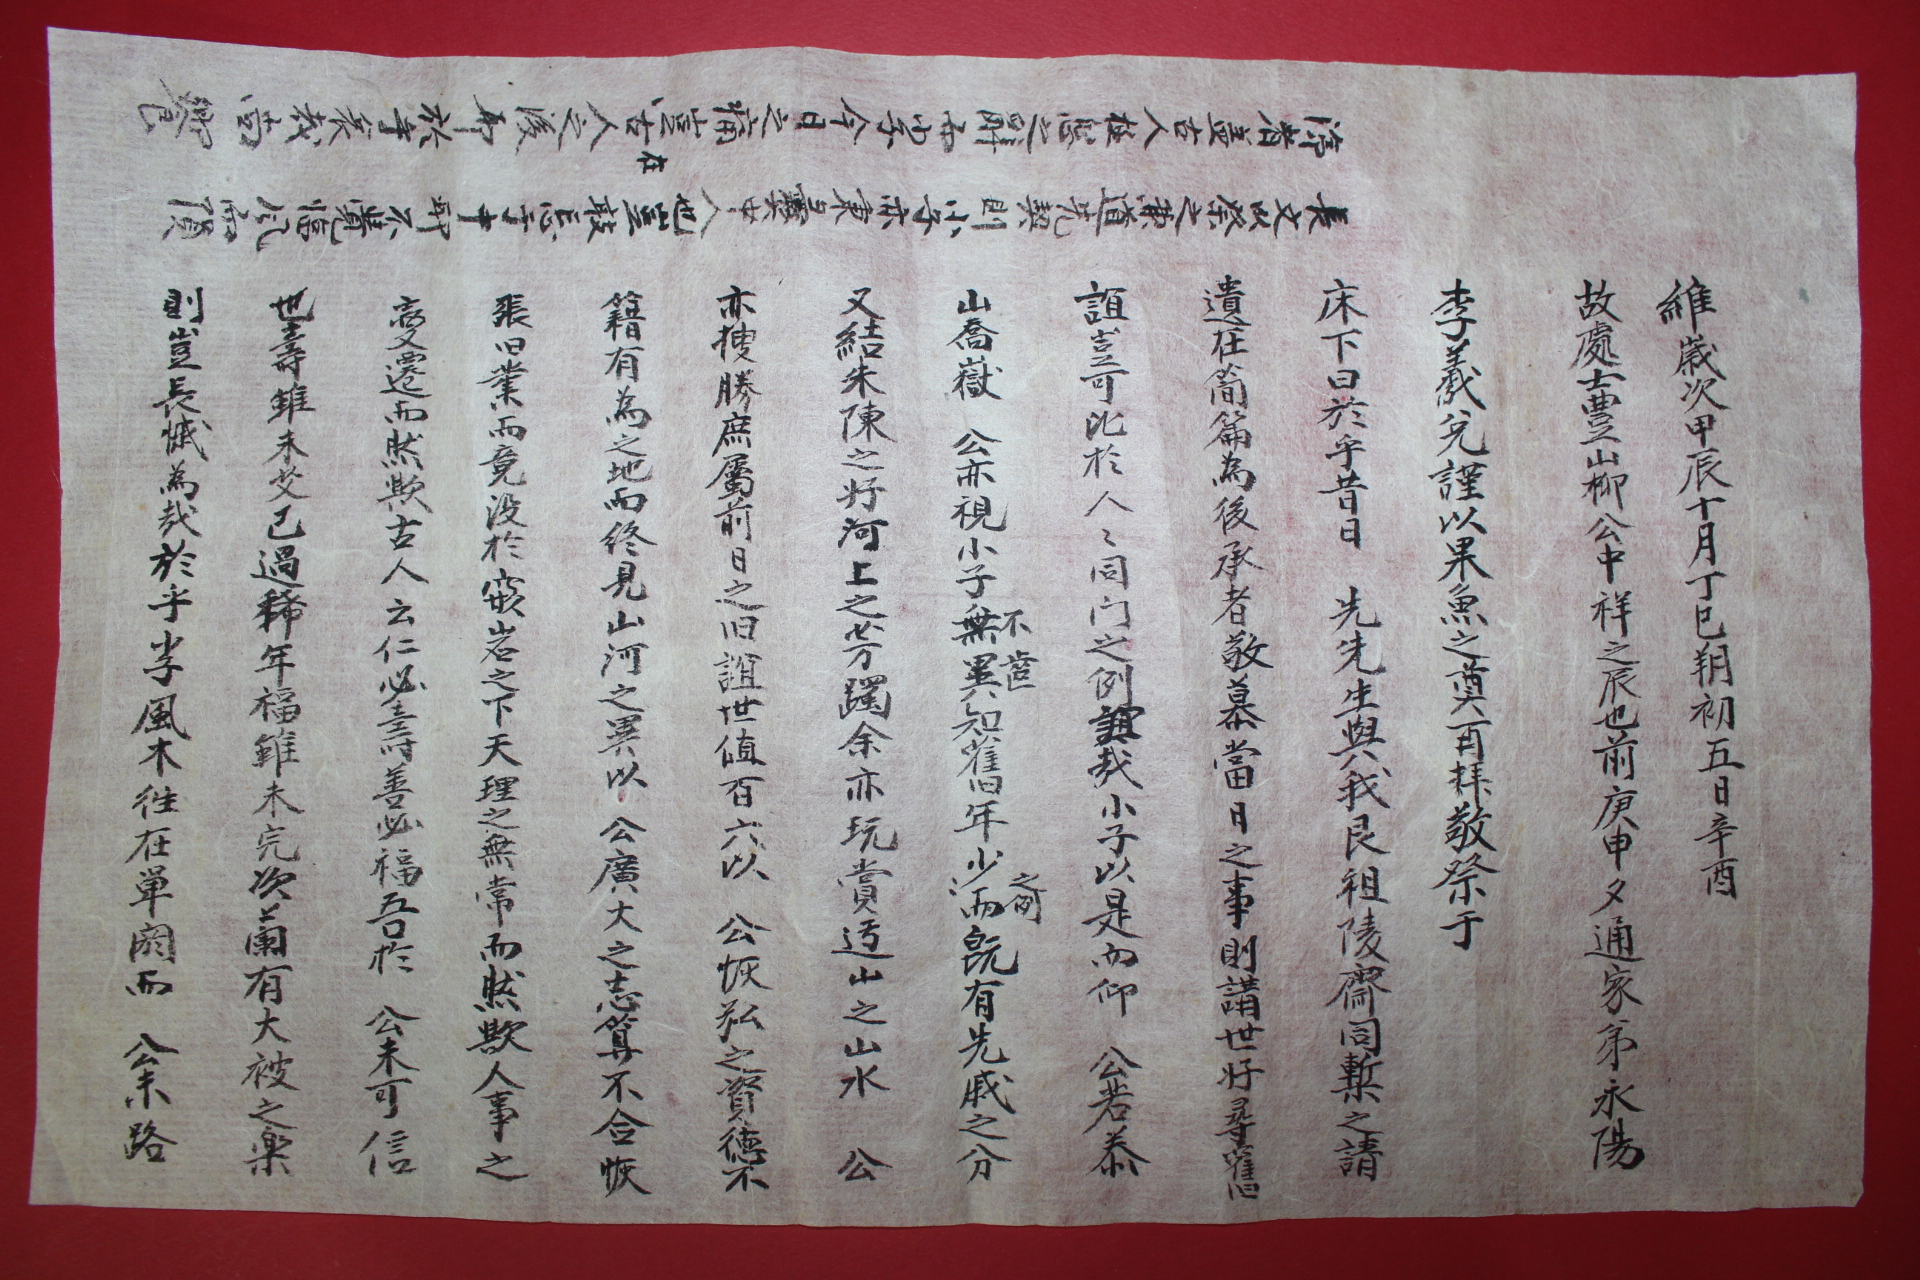 維歲次甲辰十月丁巳朔初五日辛酉
故處士豊山柳公中祥之辰也前庚申夕通家弟永陽
李羲兌謹以果魚之奠再拜敬祭于
床下曰於乎昔日 先先生與我艮祖陵齋同槧之請
遺在簡篇為後承者敬慕當日之事則講世好尋舊
誼豈可比於人々同門之例誼哉小子以是而仰 公若泰
山喬嶽 公亦視小子無異知舊年少而旣有先戚之分
不齒
之例
又結朱陳之好河上之芳躅余亦玩賞迃山之山水 公
亦搜勝庶屬前日之旧誼世値百六以 公恢弘之資德不
籍有為之地而終見山河之異以 公廣大之志算不合恢
張旧業而竟没於巖岩之下天理之無常而然歟人事之
變遷而然歟古人云仁必壽善必福吾於 公未可信
也壽雖未艾已過稀年福雖未完次蘭有大被之樂
則豈長慽為哉於乎小子風木往在單閼而 公来路
長文以祭之兼道先契則小子亦東是囊中人也豈敢忘于中耶不覺臨風而隕
涕昔者豈古人極悠之別而小子今日之痛豈在古人之後耶於乎哀哉尚
饗